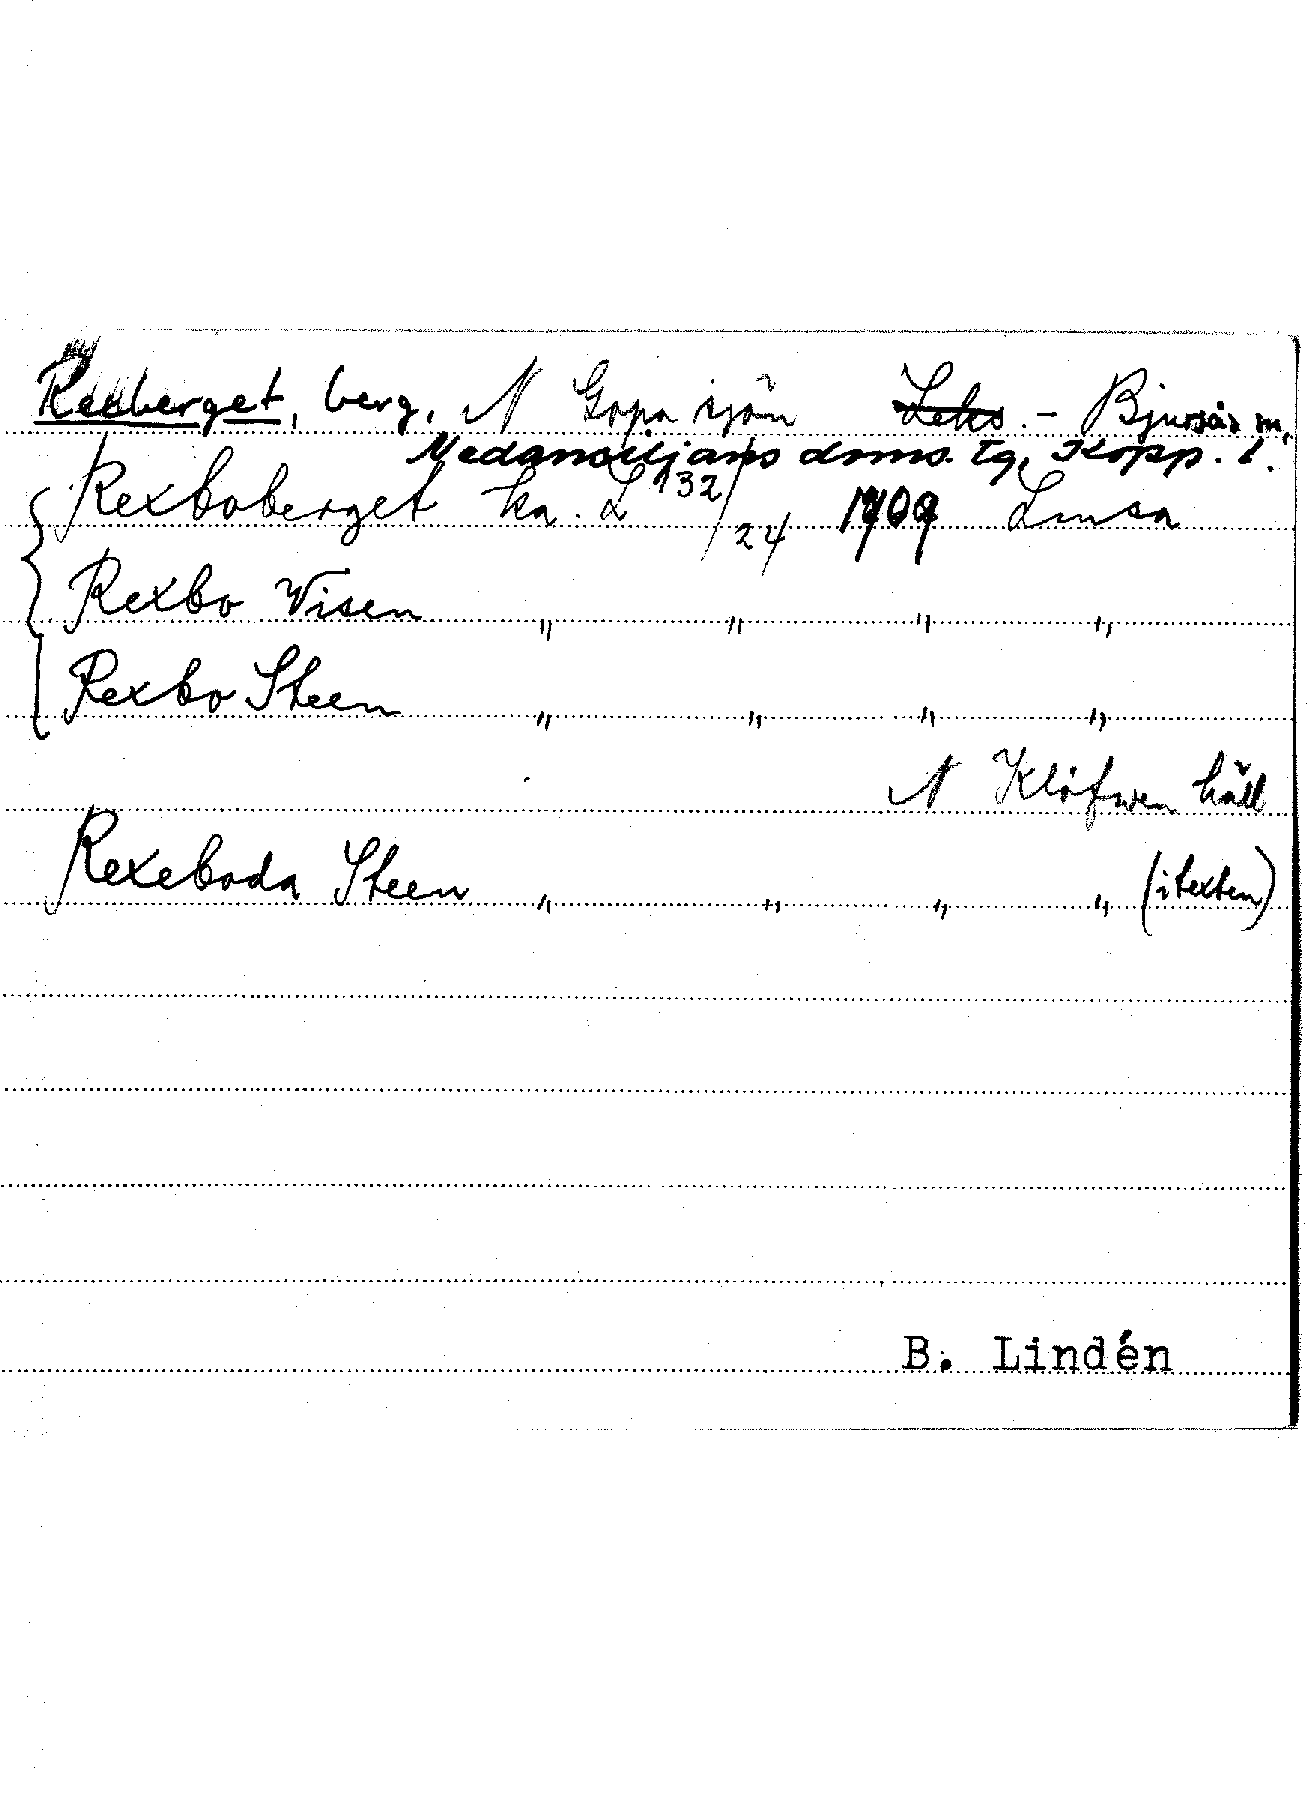 Rexberget, berg, N Gopa sjön Leks. - Bjursås m,
Nedansiljans doms. tg, Kopp. l.
Rexboberget ka. L 132/24 1709 Linsa
Rexbo Wisen " " " "
Rexbo Steen " " " "
N Klöfwen häll
Rexeboda Steen " " " " (i texten)
B. Lindén